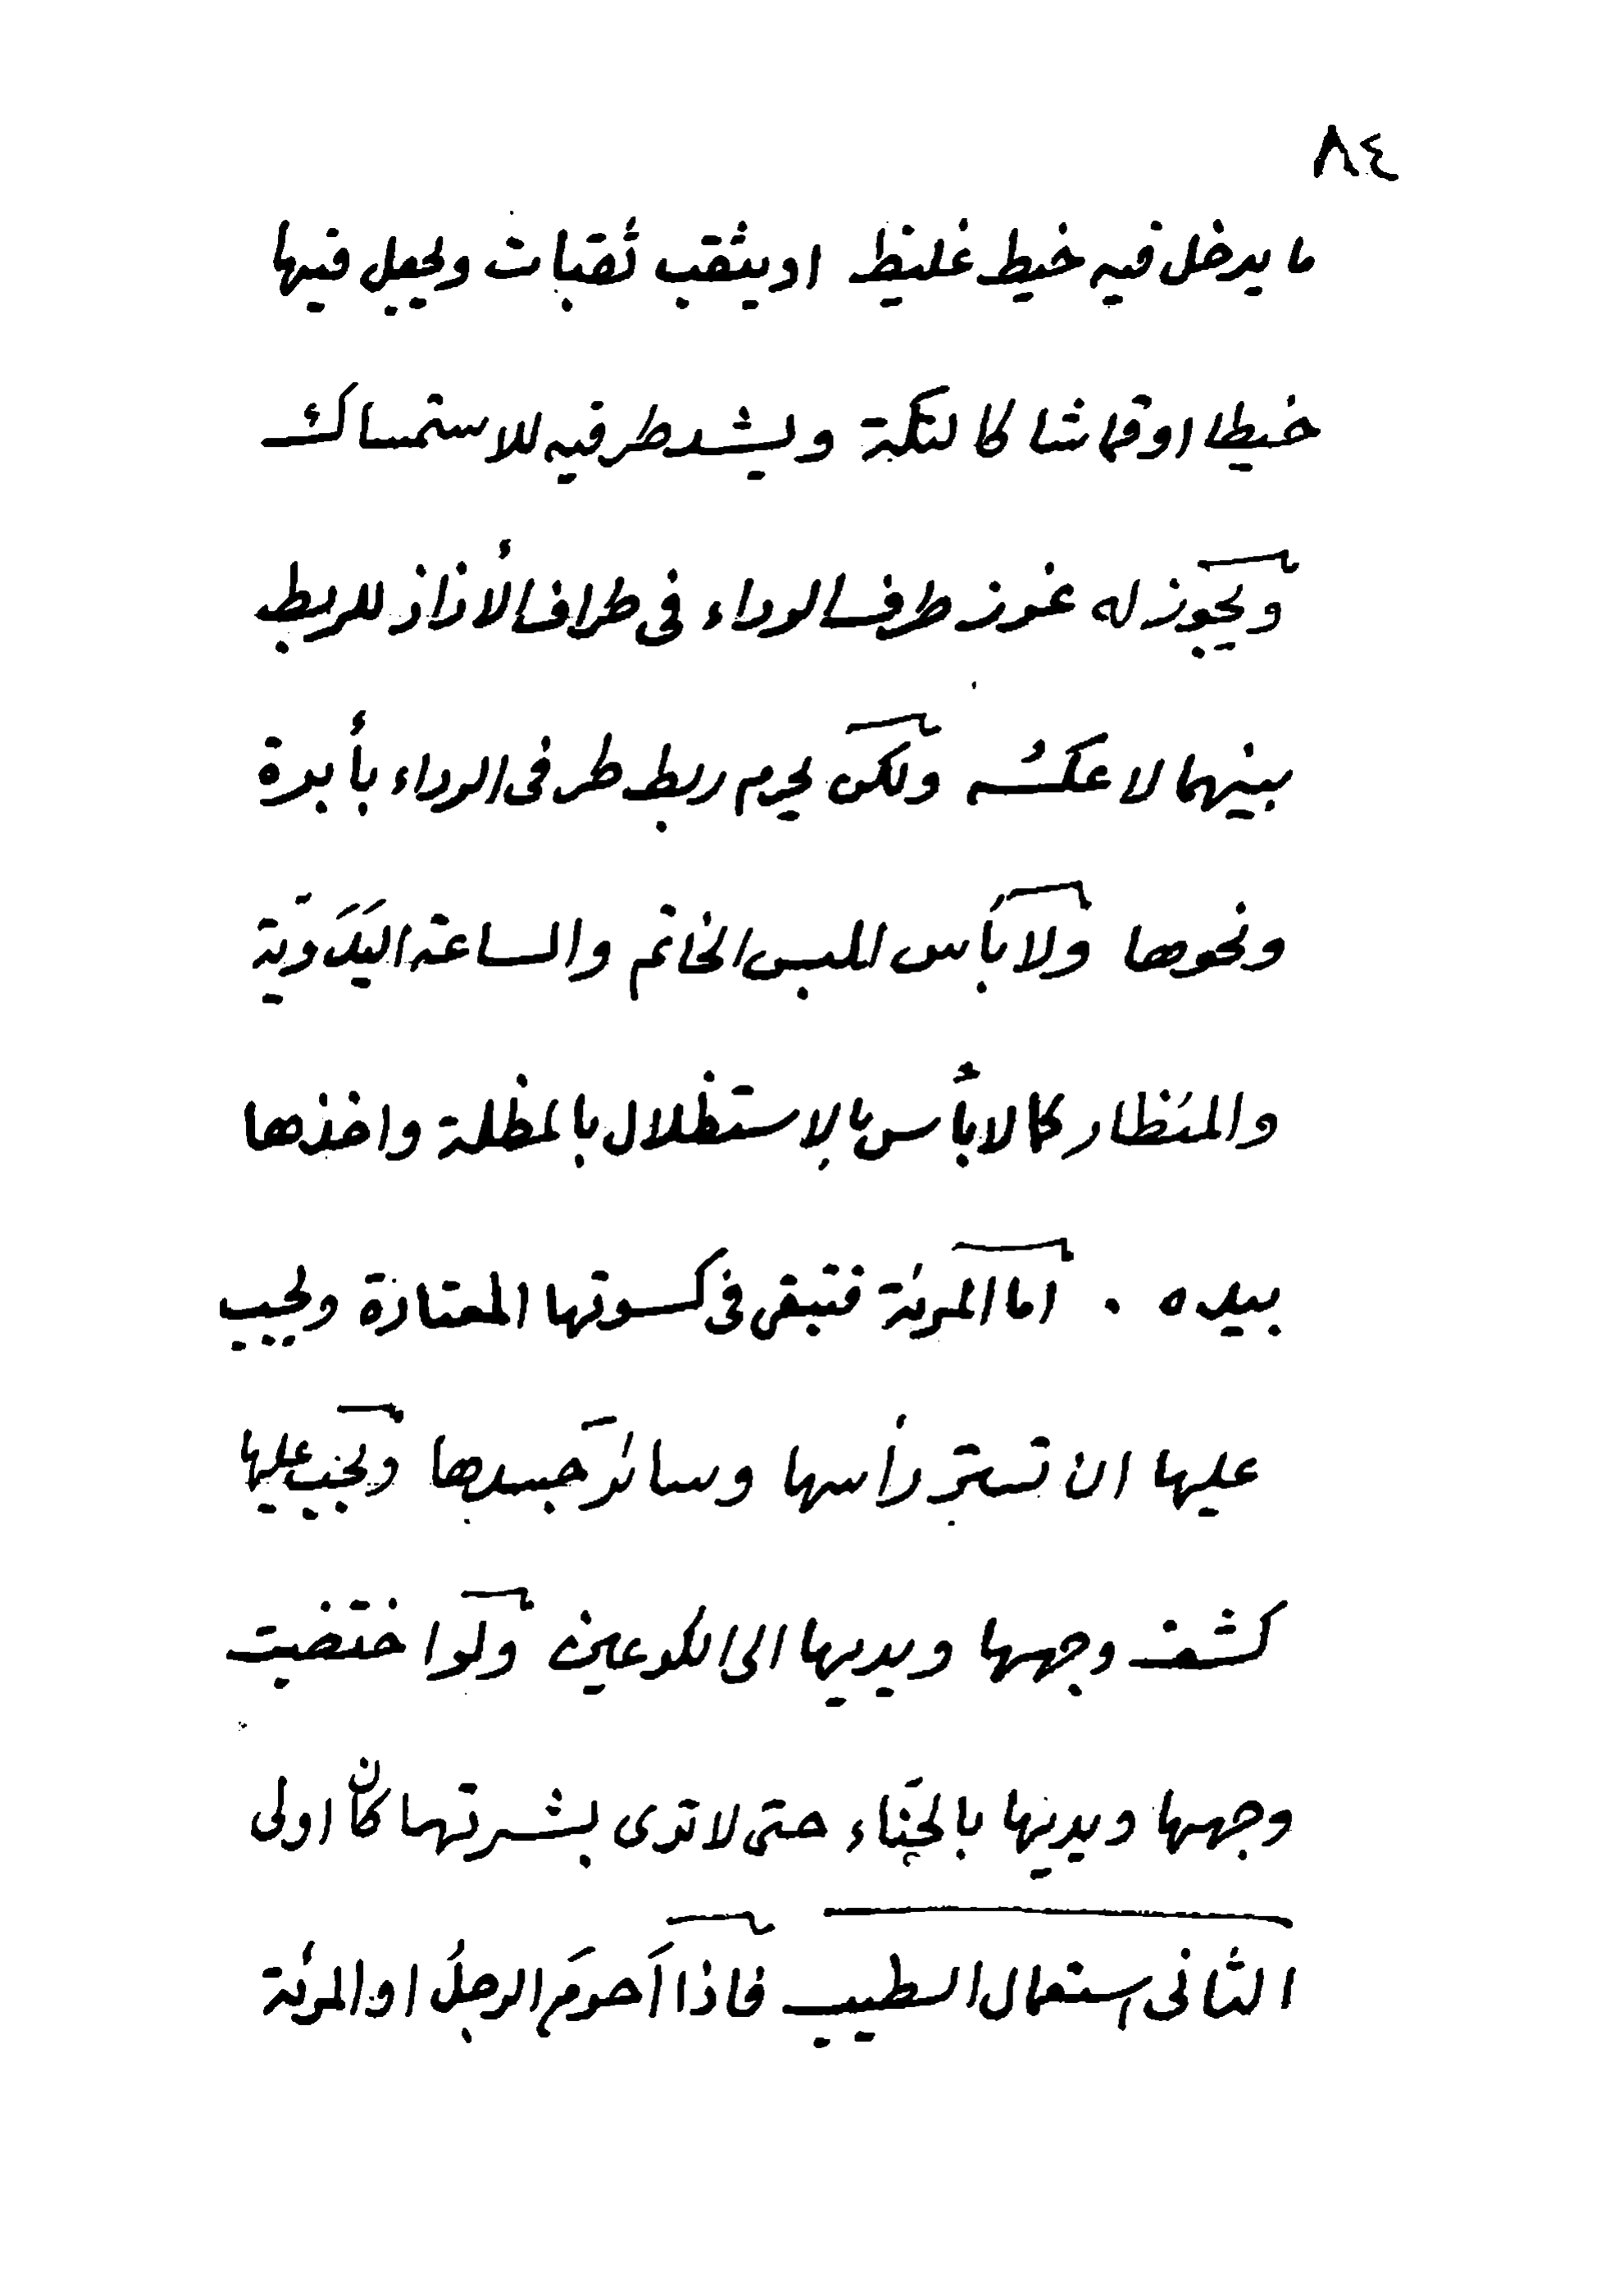 ٨٤
ما يدخل فيه خيط غليظ او يثقب ثقبات ويجعل فيها
خيطا او قماشا كالتكة ويشد طرفيه للاستمساك
ويجوز له غرز طرف الرداء في طراف الأزار للربط
بينهما لا عكسُه ولكن يحرم ربط طرفى الرداء بأبرة
ونحوها ولا بَأس للبس الخاتم والساعة اليَدَويّة
والمنظار كما لا بأس بالإستظلال بالمظلة واخذها
بيده . اما المرئة فتبقى فى كسوتها الممتازة ويجب
عليها ان تستر رأسها وسائر جَسدها ويجب عليها
كشف وجهها ويديها الى الكوعين ولو اختضبت
وجهها ويديها بالحِنّاء حتى لا ترى بشرتها كان اولى
الثانى استعمال الطيب فاذا اَحرَم الرجلُ او المرئة